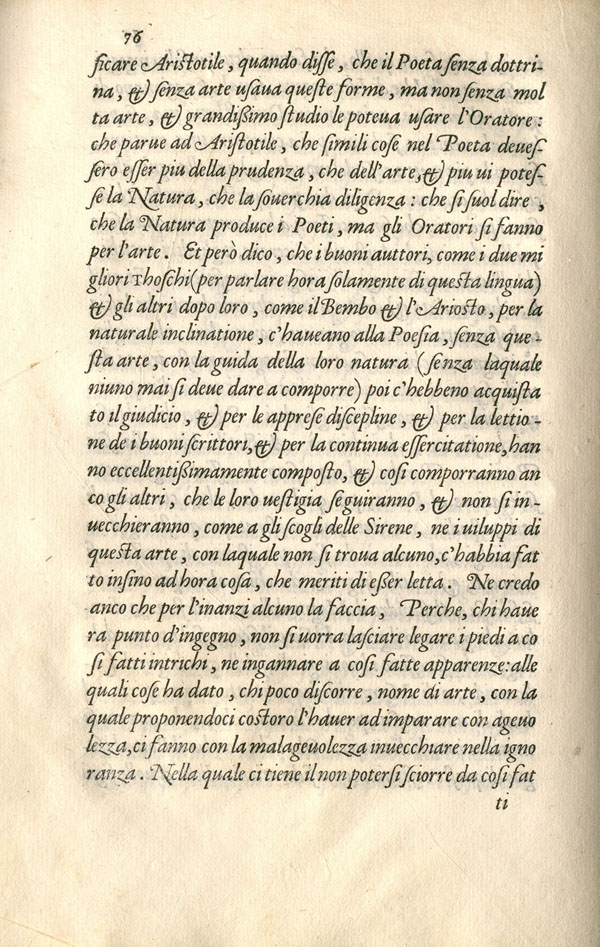 76
ficare Aristotile, quando disse, che il Poeta senza dottri-
na, & senza arte usaua queste forme, ma non senza mol
ta arte, & grandißimo studio le poteua usare l'Oratore:
che parue ad Aristotile, che simili cose nel Poeta deues-
sero esser piu della prudenza, che dell'arte, & piu ui potes-
se la Natura, che la souerchia diligenza: che si suol dire,
che la Natura produce i Poeti, ma gli Oratori si fanno
per l'arte. Et però dico, che i buoni auttori, come i due mi
gliori Thoschi (per parlare hora solamente di questa lingua)
& gli altri dopo loro, come il Bembo & l'Ariosto, per la
naturale inclinatione, c'haueano alla Poesia, senza que-
sta arte, con la guida della loro natura (senza laquale
niuno mai si deue dare a comporre) poi c'hebbeno acquista
to il giudicio, & per le apprese discepline, & per la lettio-
ne de i buoni scrittori, & per la continua essercitatione, han
no eccellentißimamente composto, & cosi comporranno an
co gli altri, che le loro uestigia seguiranno, & non si in-
uecchieranno, come a gli scogli delle Sirene, ne i uiluppi di
questa arte, con laquale non si troua alcuno, c'habbia fat
to insino ad hora cosa, che meriti di eßer letta. Ne credo
anco che per l'inanzi alcuno la faccia, Perche, chi haue
ra punto d'ingegno, non si uorra lasciare legare i piedi a co
si fatti intrichi, ne ingannare a cosi fatte apparenze: alle
quali cose ha dato, chi poco discorre, nome di arte, con la
quale proponendoci costoro l'hauer ad imparare con ageuo
lezza, ci fanno con la malageuolezza inuecchiare nella igno
ranza. Nella quale ci tiene il non potersi sciorre da cosi fat
ti